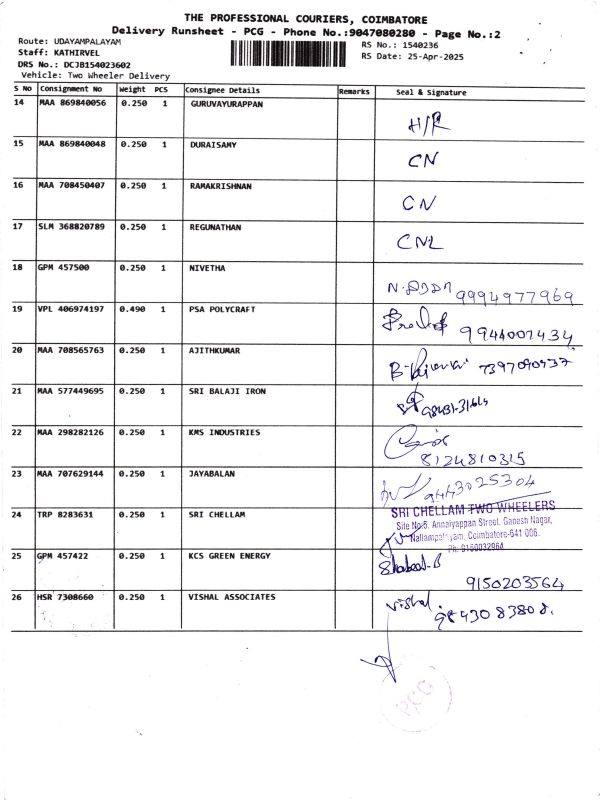 THE PROFESSIONAL COURIERS, COIMBATORE
Delivery Runsheet - PCG - Phone No.:9047080280 - Page No.:2
Route: UDAYAMPALAYAM
Staff: KATHIRVEL
DRS No.: DCJB154023602
Vehicle: Two Wheeler Delivery
RS No.: 1540236
RS Date: 25-Apr-2025
S No Consignment No Weight PCS Consignee Details Remarks Seal & Signature
14 MAA 869840056 0.250 1 GURUVAYURAPPAN H/R
15 MAA 869840048 0.250 1 DURAISAMY CN
16 MAA 708450407 0.250 1 RAMAKRISHNAN CN
17 SLM 368820789 0.250 1 REGUNATHAN CNL
18 GPM 457500 0.250 1 NIVETHA 9994977969
19 VPL 406974197 0.490 1 PSA POLYCRAFT 9944007434
20 MAA 708565763 0.250 1 AJITHKUMAR
21 MAA 577449695 0.250 1 SRI BALAJI IRON
22 MAA 298282126 0.250 1 KMS INDUSTRIES 8124810325
23 MAA 707629144 0.250 1 JAYABALAN 9443025304
24 TRP 8283631 0.250 1 SRI CHELLAM
SRI CHELLAM TWO WHEELERS
Site No:5, Annaiyappan Street, Ganesh Nagar,
Nallampalayam, Coimbatore-641 006.
Ph: 9150032964
25 GPM 457422 0.250 1 KCS GREEN ENERGY Shabeed.B
9150203564
26 HSR 7308660 0.250 1 VISHAL ASSOCIATES Vishal
9843083808.
PCG